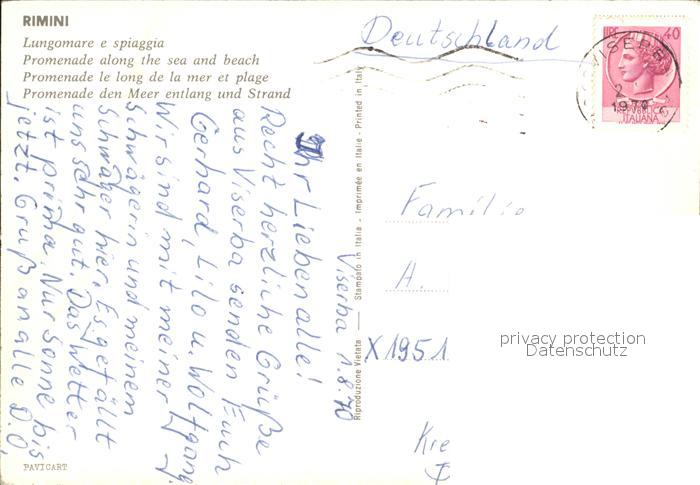 RIMINI
Lungomare e spiaggia
Promenade along the sea and beach
Promenade le long de la mer et plage
Promenade den Meer entlang und Strand
Deutschland
LIRE 40
VISERBA
1970
REPUBBLICA
ITALIANA
Viserba 1.8.70
Ihr Lieben alle!
Recht herzliche Grüße
aus Viserba senden Euch
Gerhard, Lilo u. Wolfgang.
Wir sind mit meiner
Schwägerin und meinem
Schwager hier. Es gefällt
uns sehr gut. Das Wetter
ist prima. Nur Sonne bis
jetzt. Gruß an alle D.O.
Riproduzione Vietata — Stampato in Italia - Imprimée en Italie - Printed in Italy
Familie
A.
X 1951
Kre
PAVICART
privacy protection
Datenschutz